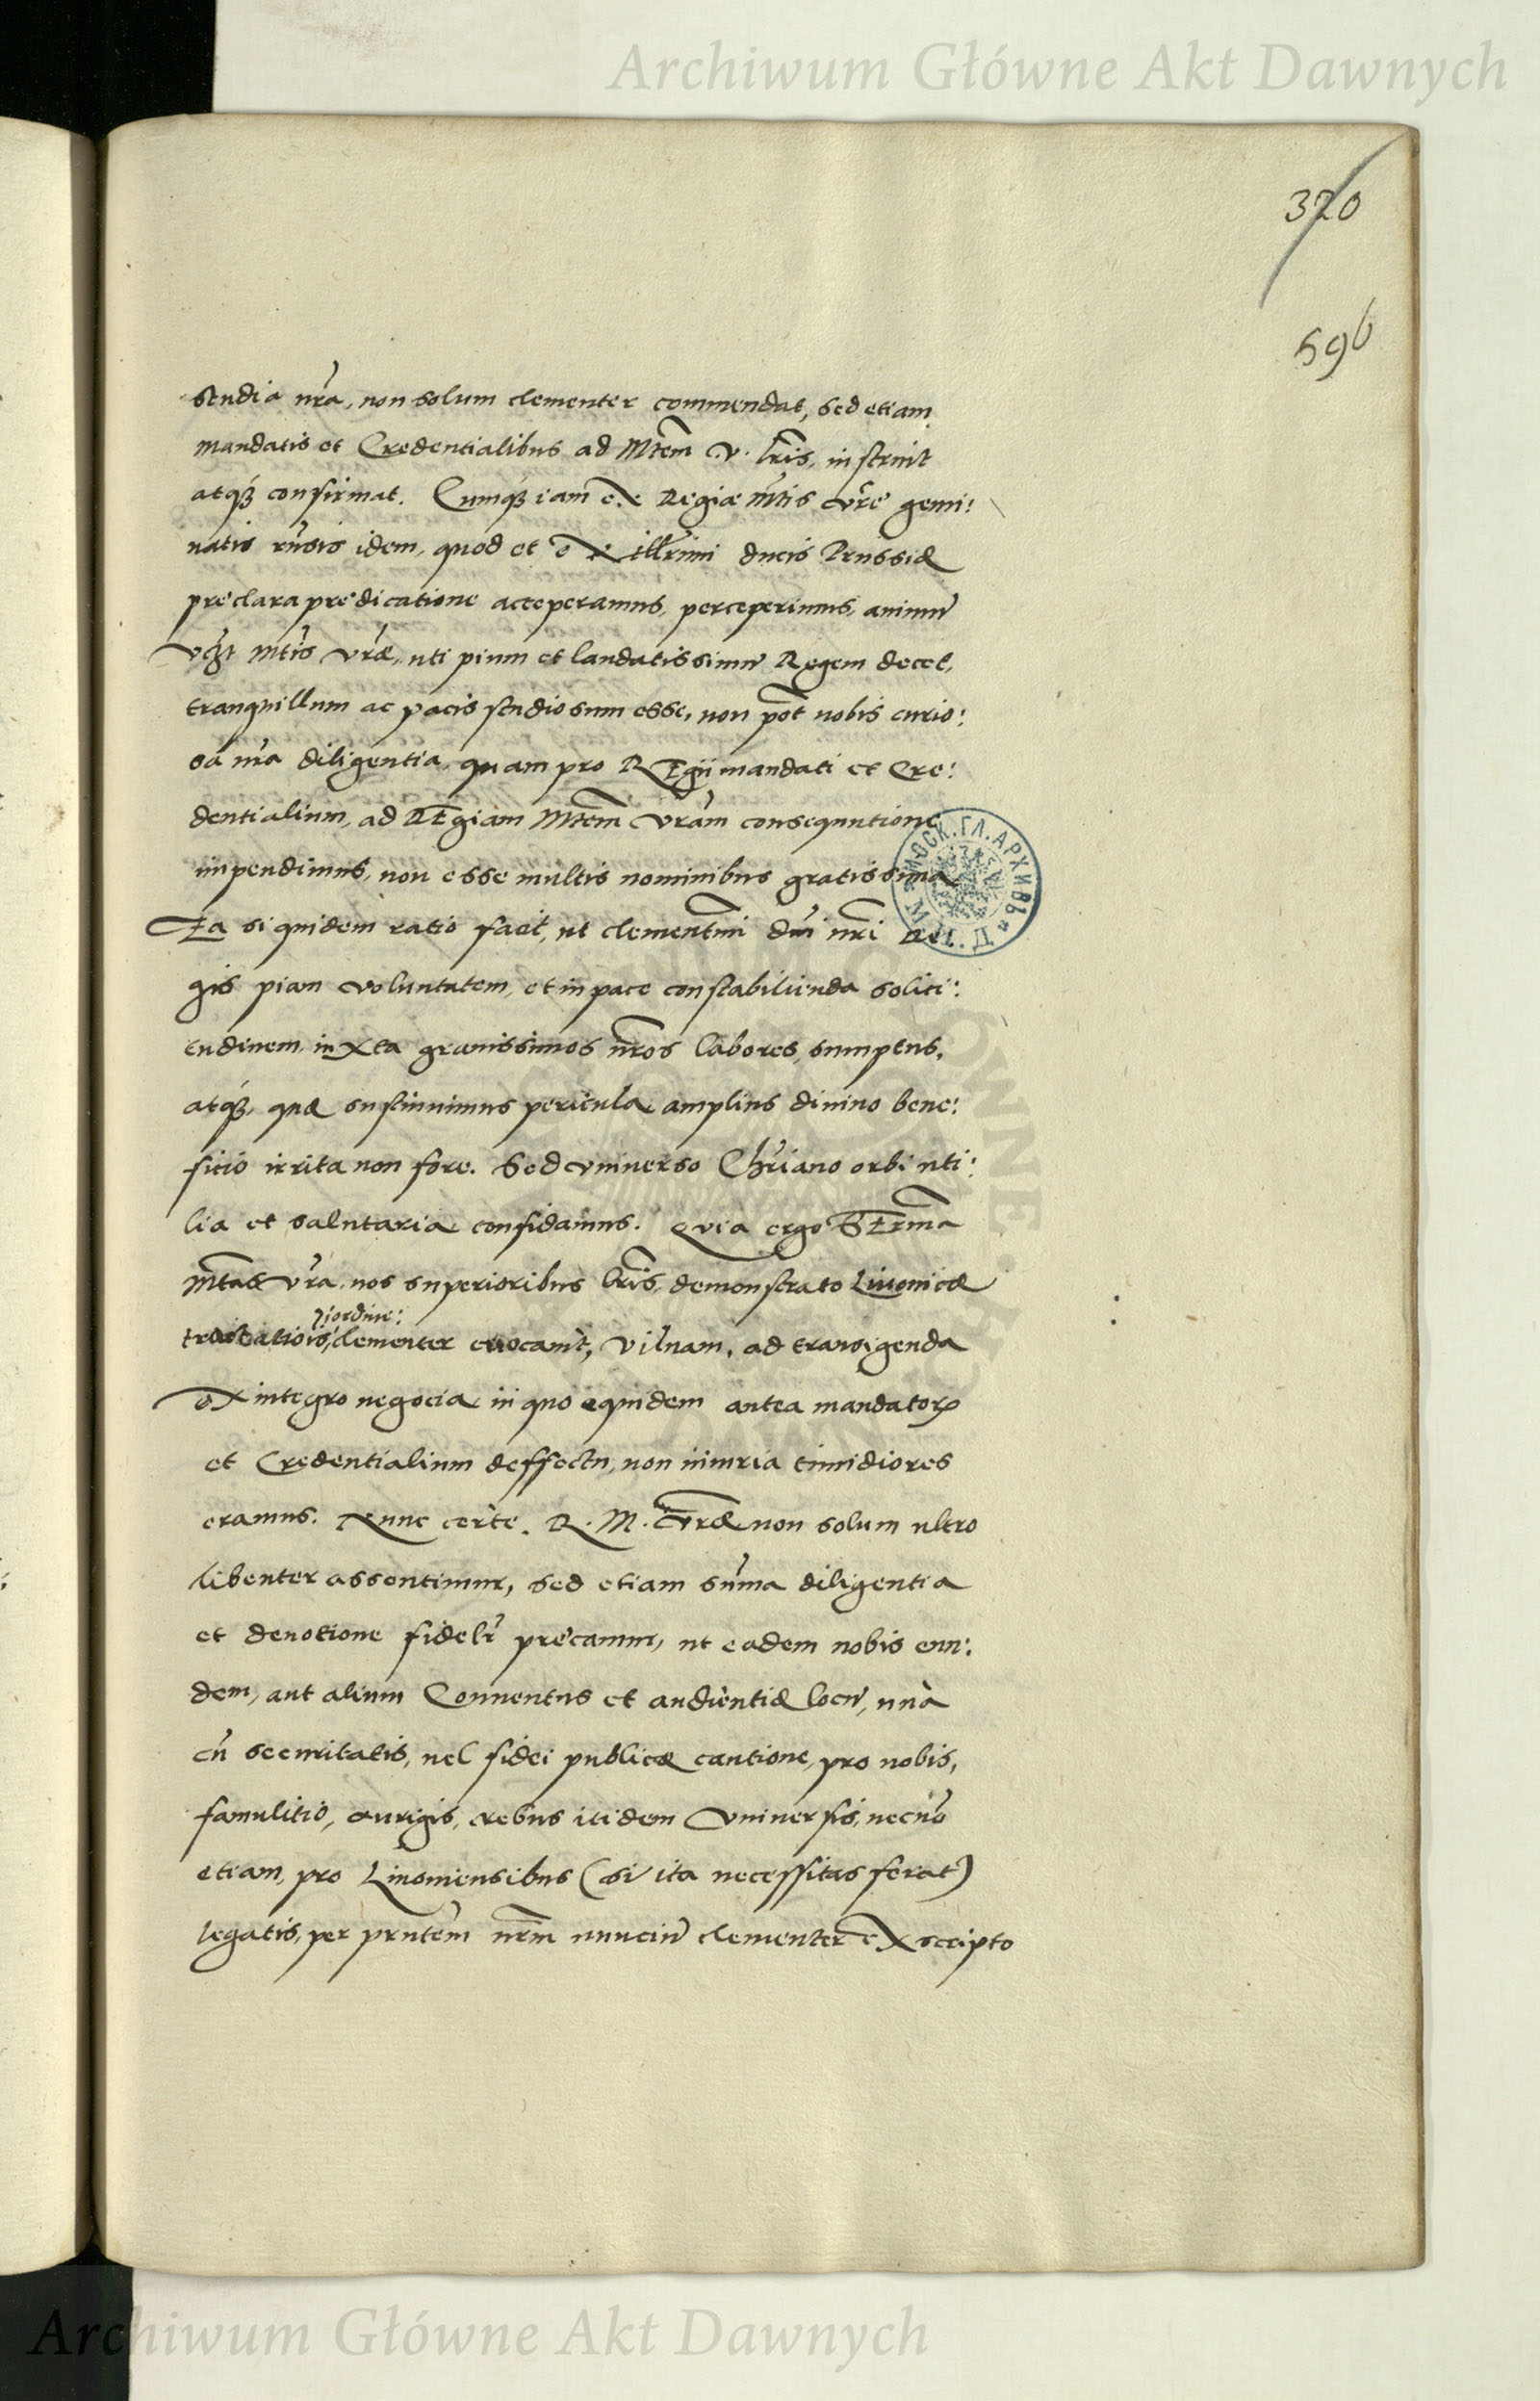 Archiwum Główne Akt Dawnych
320
596
studia nr̃a, non solum clementer commendat, sed etiam
mandatis et Credentialibus ad Mtem v. lr̃is, instruit
atq₃ confirmat. Cumq₃ iam ex Regiæ Mt̃is vr̃e gemi:
natis rursis idem, quod et ex illr̃imi ducis Prussiæ
preclara predicatione acceperamus, perceperimus, animũ
Mt̃is Vr̃æ, uti pium et laudatissimũ Regem decet,
tranquillum ac pacis studiosum esse, non põt nobis curio:
sa nr̃a diligentia, quam pro REgii mandati et Cre:
dentialium, ad REgiam Mtem Vr̃am consequutione
impendimus, non esse multis nominibus gratissima
Ea siquidem ratio facit, ut clementm̃i dñi nr̃i Re:
gis piam voluntatem, et in pace constabilienda solici:
tudinem, iuxta grauissimos nr̃os labores, sumptus,
atq₃, quæ sustinuimus pericula amplius diuino bene:
ficio irrita non fore. Sed vniuerso Chr̃iano orbi uti:
lia et salutaria confidamus. Quia ergo SErma
Mtas vr̃a nos superioribus lr̃is, demonstrato Liuonicæ
ordine:
tractatiois, clementer euocauit, Vilnam, ad transigenda
ex integro negocia in quo equidem antea mandatorꝝ
et Credentialium deffectu, non iniuria timidiores
eramus. Nunc certe. R. M. Vr̃æ non solum ultro
libenter assentimur, sed etiam sum̃a diligentia
et deuotione fidelr̃ precamur, ut eadem nobis eun:
dem, aut alium Conuentus et audientiæ locũ, unà
cũ securitatis, uel fidei publicæ cautione, pro nobis,
famulitio, aurigis, rebus itidem Vniuersis, necño
etiam, pro Liuoniensibus (si ita necessitas ferat)
legatis, per pr̃ntem nr̃m nunciũ clementer ex scripto
МОСК. ГЛ. АРХИВЪ М. И. Д.
Archiwum Główne Akt Dawnych